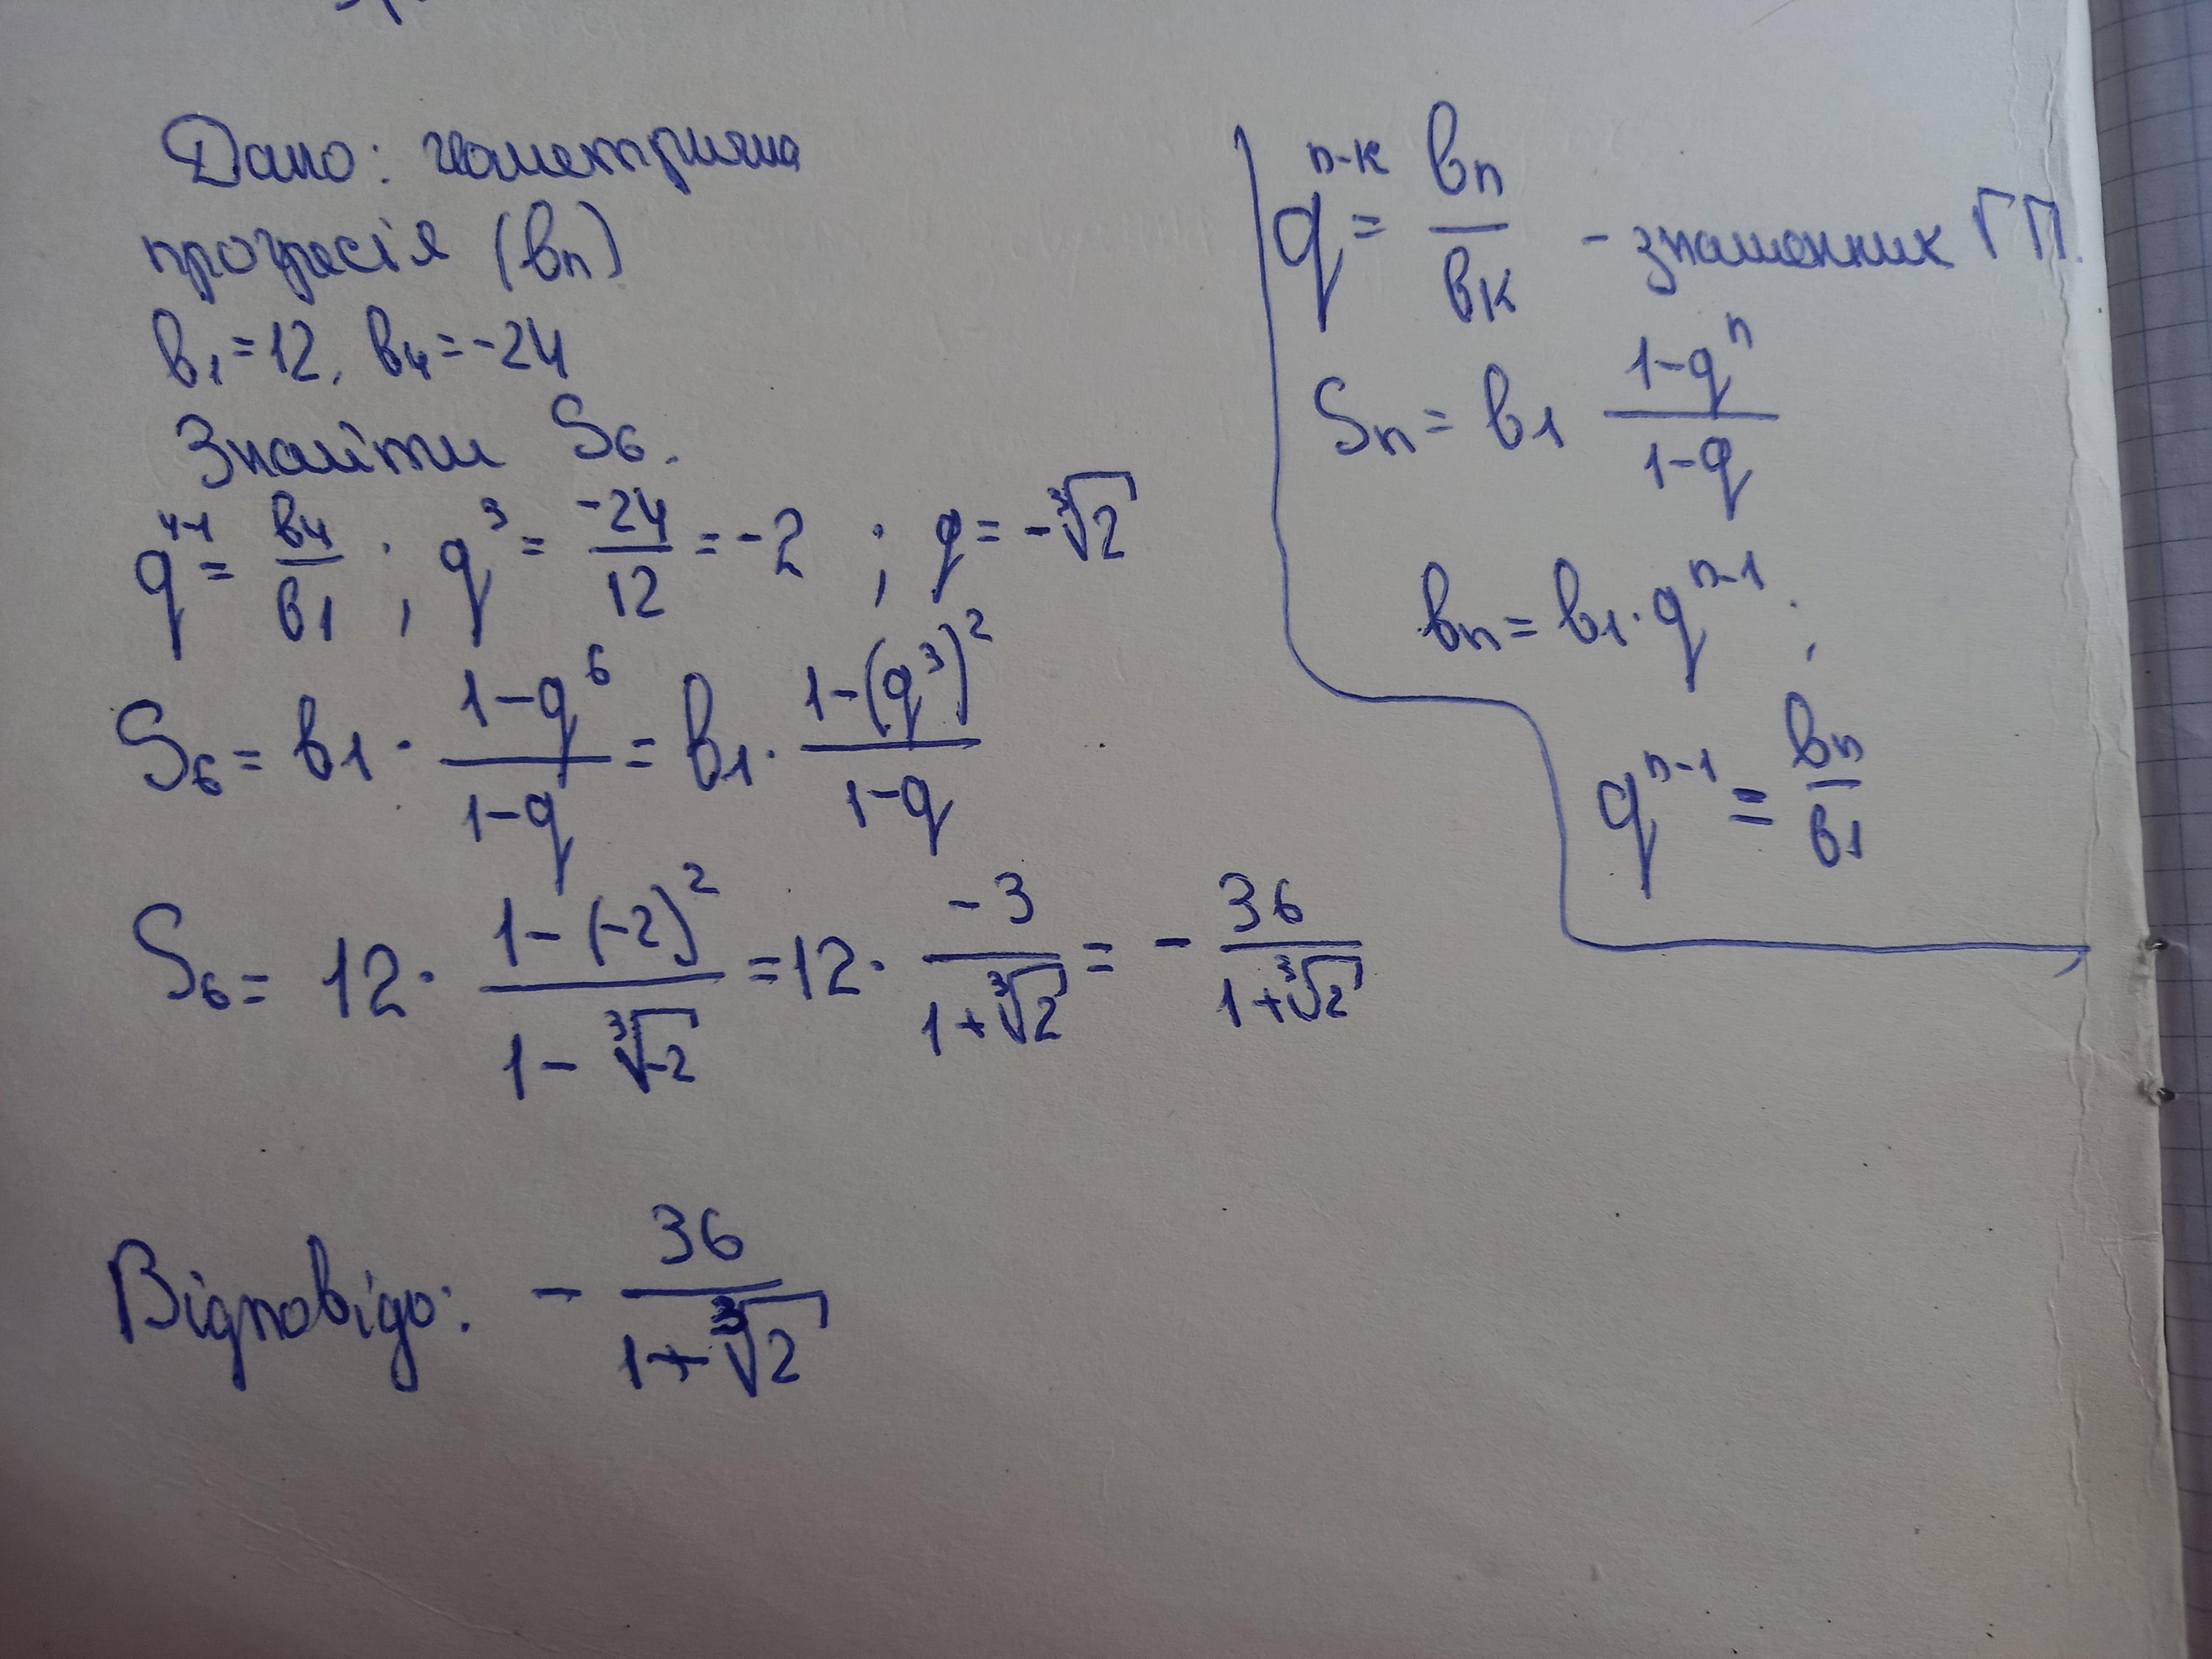 Дано: геометрична
прогресія (bn)
b₁=12, b₄=-24
Знайти S₆.
q⁴⁻¹ = b₄/b₁ ; q³ = -24/12 = -2 ; q = -∛2
S₆ = b₁ · (1-q⁶)/(1-q) = b₁ · (1-(q³)²)/(1-q)
S₆ = 12 · (1-(-2)²)/(1-∛-2) = 12 · -3/(1+∛2) = - 36/(1+∛2)
Відповідь: - 36/(1+∛2)
qⁿ⁻ᵏ = bn/bк - знаменник ГП.
Sn = b₁ (1-qⁿ)/(1-q)
bn = b₁·qⁿ⁻¹ ;
qⁿ⁻¹ = bn/b₁